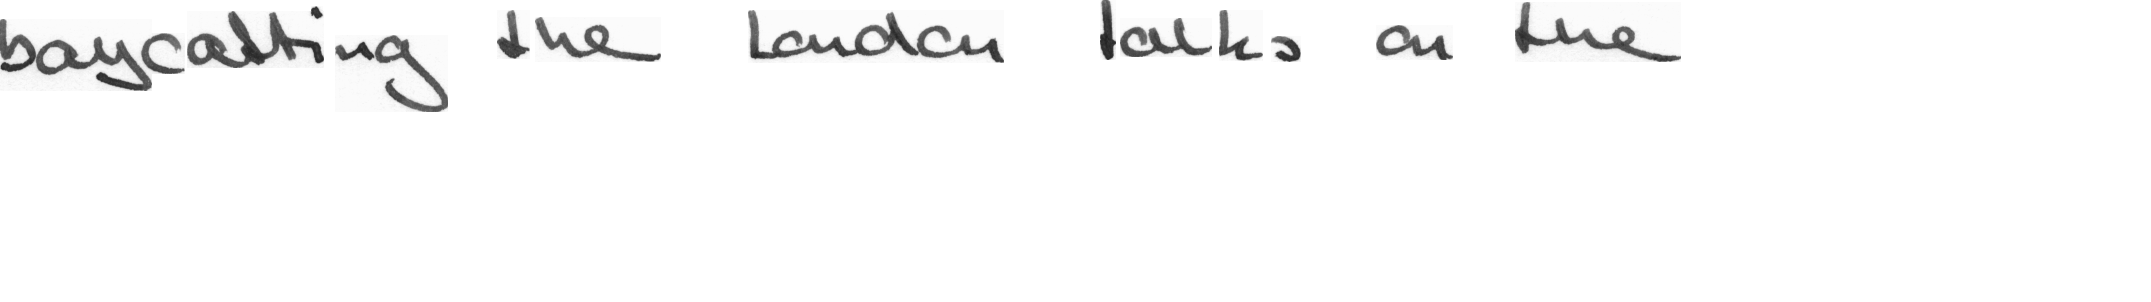 boycotting the London talks on the